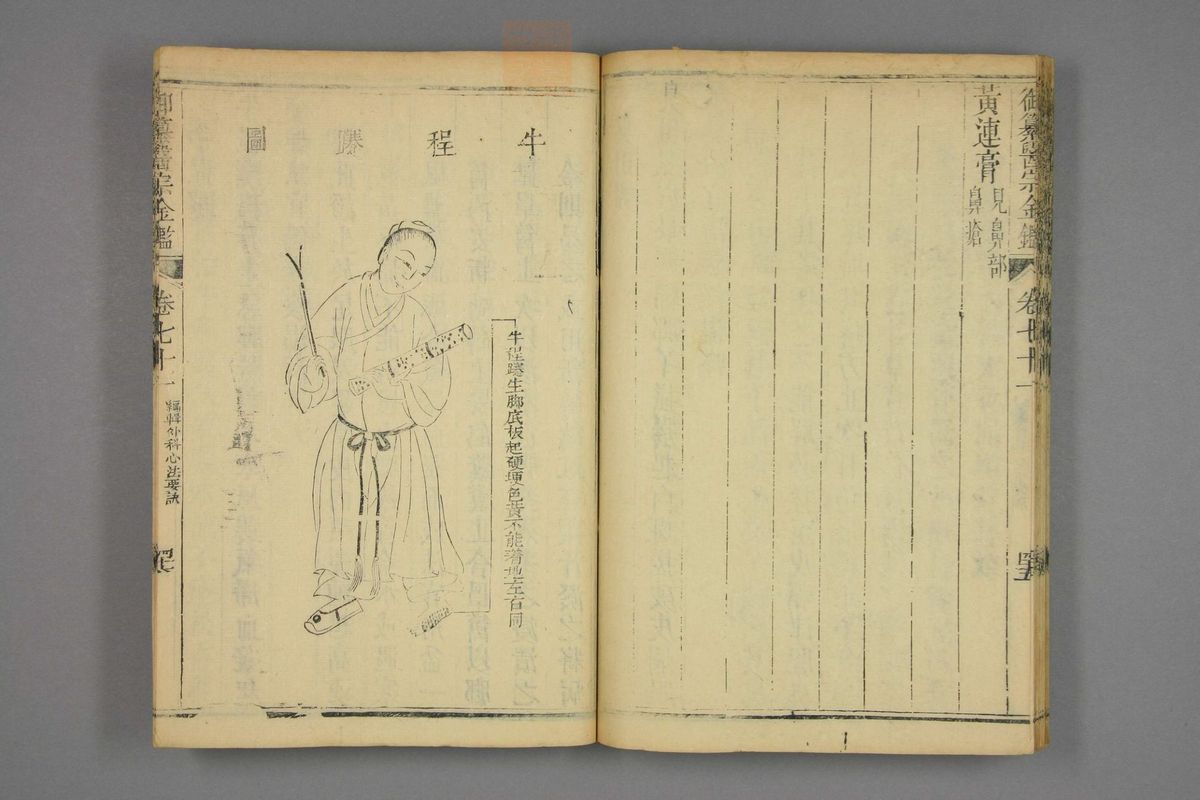 御纂醫宗金鑑 卷七十一 四五
黃連膏
見鼻部
鼻瘡
牛程蹇圖
牛程蹇生脚底板起硬埂色黃不能着地左右同
御纂醫宗金鑑 卷七十一 編輯外科心法要訣